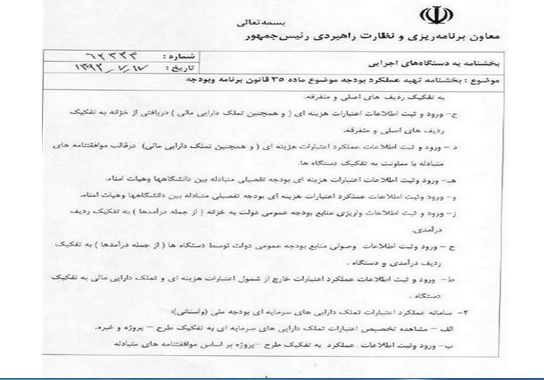 بسمه تعالی
معاون برنامه‌ریزی و نظارت راهبردی رئیس‌جمهور
بخشنامه به دستگاه‌های اجرایی
شماره :
تاریخ :
موضوع : بخشنامه تهیه عملکرد بودجه موضوع ماده ۳۵ قانون برنامه وبودجه
به تفکیک ردیف های اصلی و متفرقه.
ج- ورود و ثبت اطلاعات اعتبارات هزینه ای ( و همچنین تملک دارایی مالی ) دریافتی از خزانه به تفکیک
ردیف های اصلی و متفرقه.
د – ورود وثبت اطلاعات عملکرد اعتبارات هزینه ای ( و همچنین تملک دارایی مالی) درقالب موافقتنامه های
متبادله با معاونت به تفکیک دستگاه ها.
هـ- ورود وثبت اطلاعات اعتبارات هزینه ای بودجه تفصیلی متبادله بین دانشگاهها وهیات امناء.
و- ورود وثبت اطلاعات عملکرد اعتبارات هزینه ای بودجه تفصیلی متبادله بین دانشگاهها وهیات امناء.
ز- ورود و ثبت اطلاعات واریزی منابع بودجه عمومی دولت به خزانه ( از جمله درآمدها ) به تفکیک ردیف
درآمدی.
ح – ورود وثبت اطلاعات وصولی منابع بودجه عمومی دولت توسط دستگاه ها ( از جمله درآمدها ) به تفکیک
ردیف درآمدی و دستگاه .
ط- ورود و ثبت اطلاعات عملکرد اعتبارات خارج از شمول اعتبارات هزینه ای و تملک دارایی مالی به تفکیک
دستگاه .
۲- سامانه عملکرد اعتبارات تملک دارایی های سرمایه ای بودجه ملی (واستانی):
الف – مشاهده تخصیص اعتبارات تملک دارایی های سرمایه ای به تفکیک طرح – پروژه و غیره.
ب- ورود وثبت اطلاعات عملکرد به تفکیک طرح –پروژه بر اساس موافقتنامه های متبادله